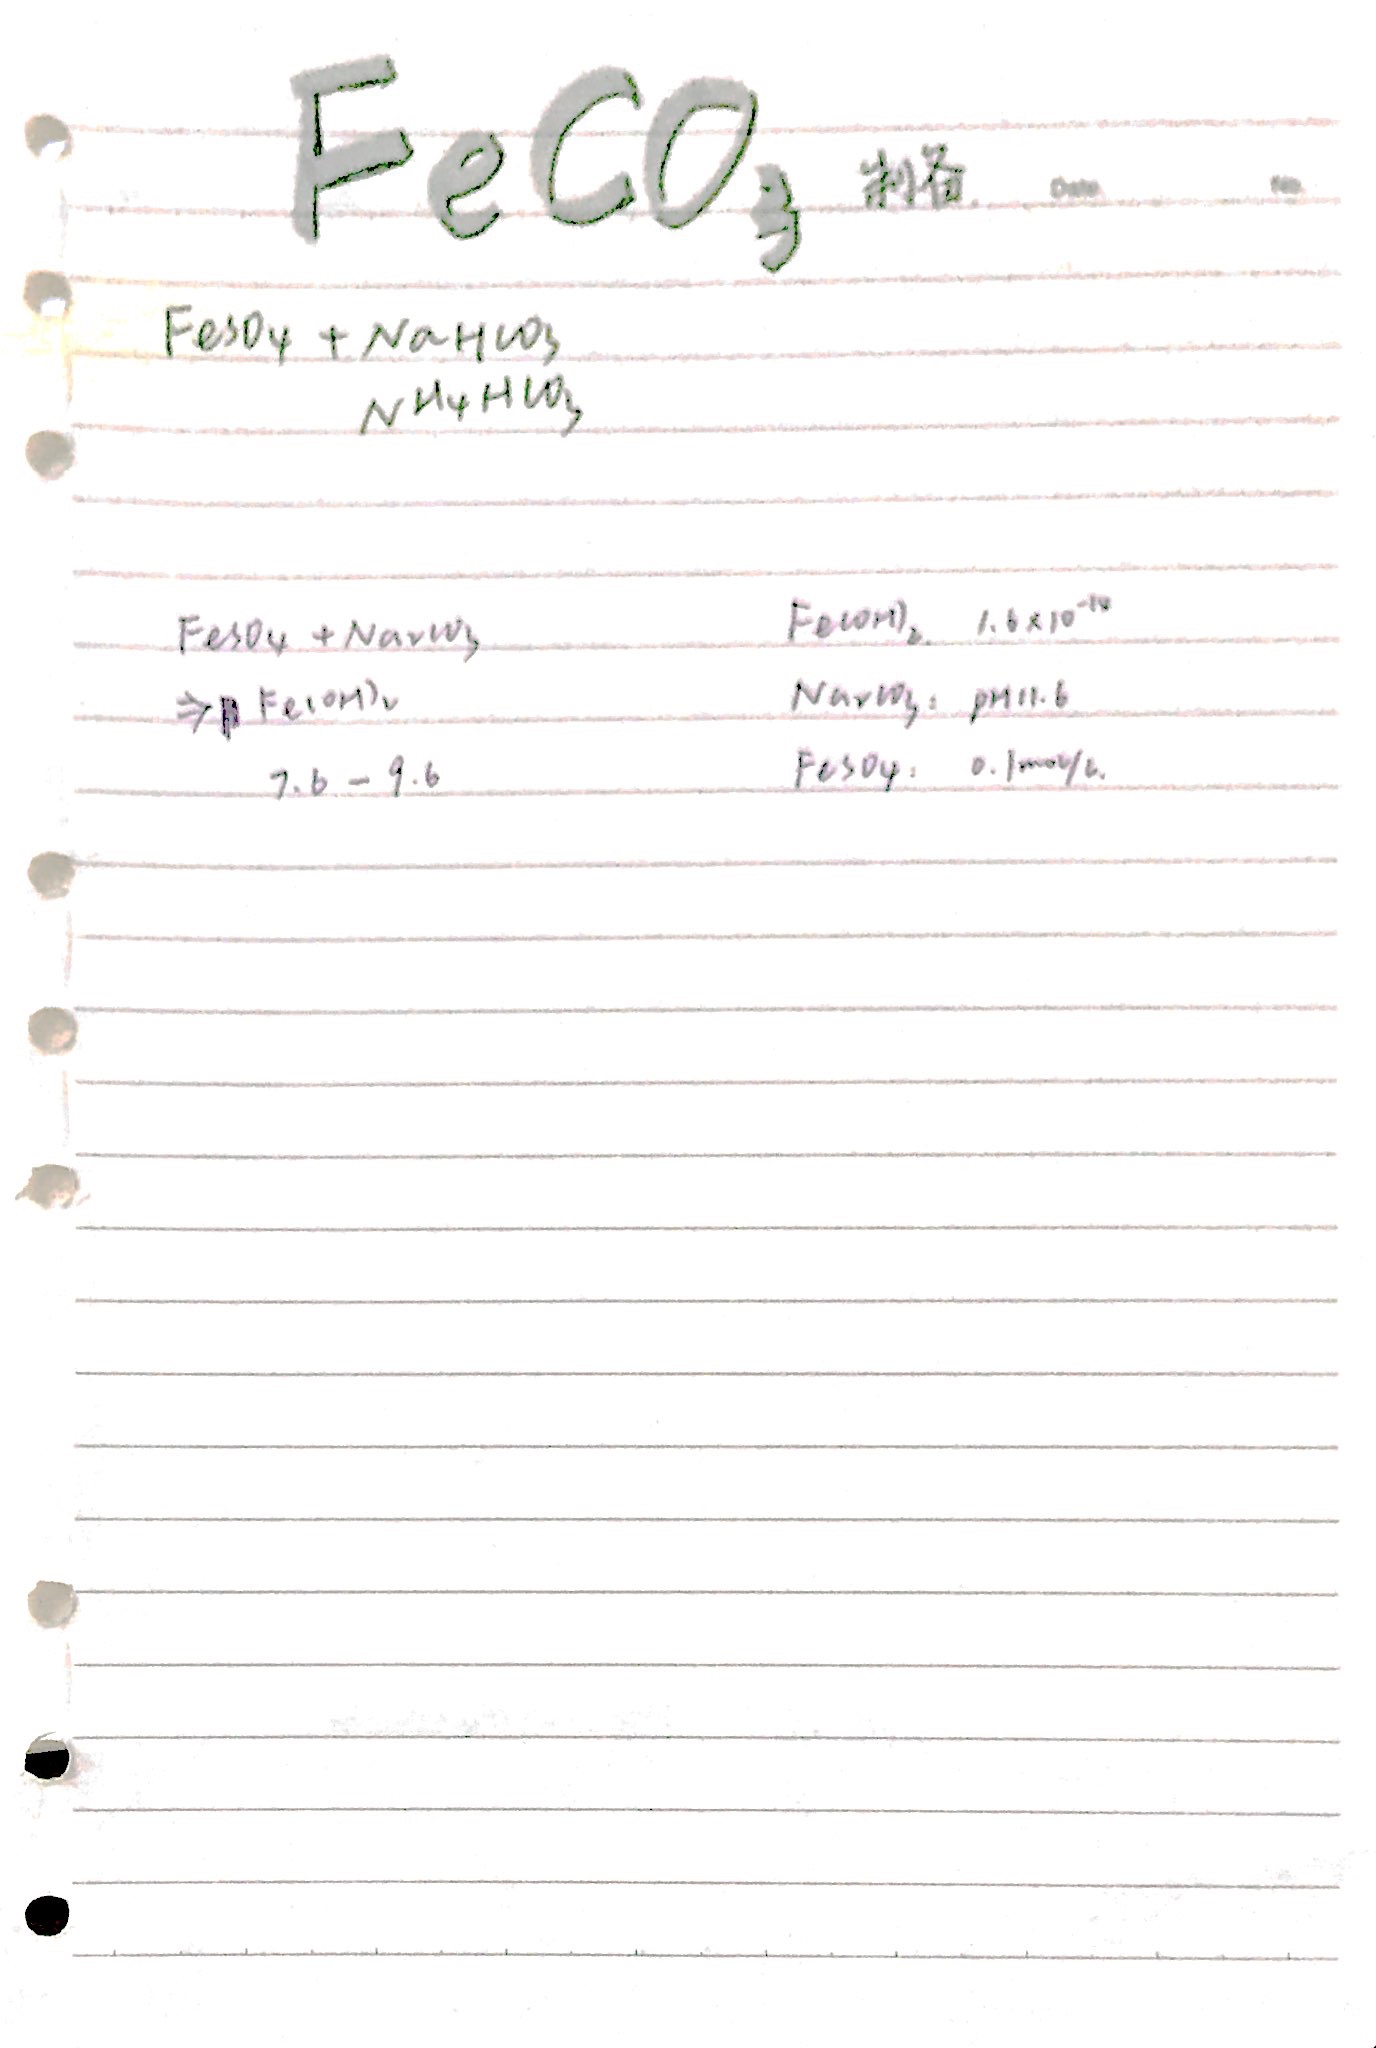 FeCO₃ 制备 Date No.
FeSO₄ + NaHCO₃
NH₄HCO₃
FeSO₄ + Na₂CO₃
⇒ Fe(OH)₂
7.6 - 9.6
Fe(OH)₂ 1.6×10⁻¹⁴
Na₂CO₃: pH 11.6
FeSO₄: 0.1mol/L.